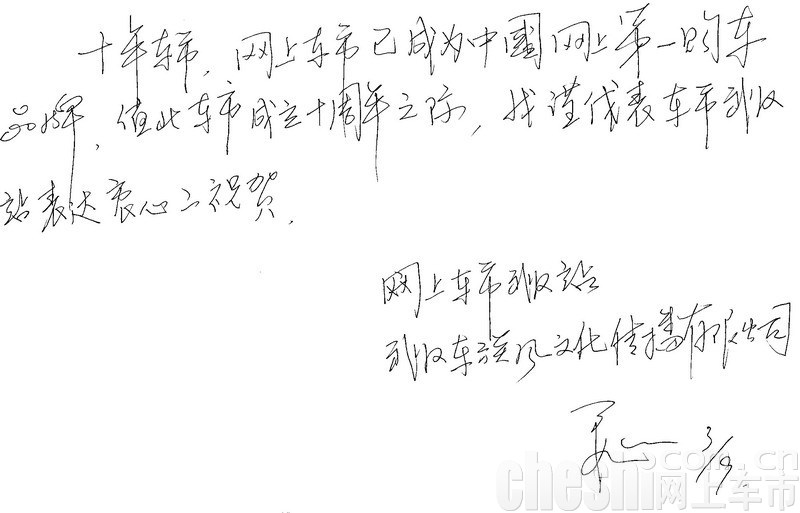 十年车市，网上车市已成为中國网上第一购车
品牌，值此车市成立十周年之际，我谨代表车市武汉
站表达衷心之祝贺.
网上车市武汉站
武汉车族风文化传播有限公司
3/9.
cheshi.com.cn
网上车市